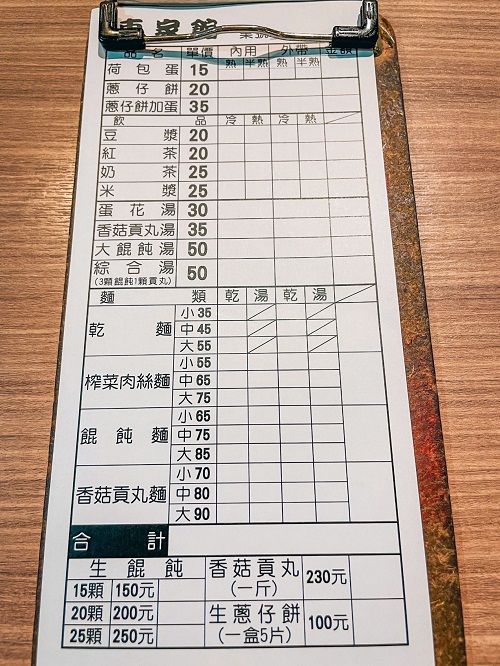 品名 單價 內用 外帶 金額
熟 半熟 熟 半熟
荷包蛋 15
蔥仔餅 20
蔥仔餅加蛋 35
飲品 冷 熱 冷 熱
豆漿 20
紅茶 20
奶茶 25
米漿 25
蛋花湯 30
香菇貢丸湯 35
大餛飩湯 50
綜合湯 50
(3顆餛飩1顆貢丸)
麵類 乾 湯 乾 湯
乾麵 小 35
中 45
大 55
榨菜肉絲麵 小 55
中 65
大 75
餛飩麵 小 65
中 75
大 85
香菇貢丸麵 小 70
中 80
大 90
合計
生餛飩
15顆 150元
20顆 200元
25顆 250元
香菇貢丸 230元
(一斤)
生蔥仔餅 100元
(一盒5片)